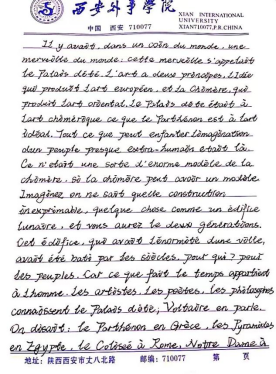 西安外事学院
XIAN INTERNATIONAL
UNIVERSITY
中国 西安 710077
XIAN710077,P.R.CHINA
Il y avait, dans un coin du monde, une
merveille du monde: cette merveille s'appelait
le Palais d'été. L'art a deux principes, l'Idée
qui produit l'art européen, et la Chimère, qui
produit l'art oriental. Le Palais d'été était à
l'art chimérique ce que le Parthénon est à l'art
idéal. Tout ce que peut enfanter l'imagination
d'un peuple presque extra-humain était là.
Ce n'était une sorte d'énorme modèle de la
chimère, si la chimère peut avoir un modèle.
Imaginez on ne sait quelle construction
inexprimable, quelque chose comme un édifice
lunaire, et vous aurez le deux générations.
Cet édifice, qui avait l'énormité d'une ville,
avait été bâti par les siècles, pour qui? pour
les peuples. Car ce que fait le temps appartient
à l'homme. Les artistes, les poètes, les philosophes
connaissent le Palais d'été, Voltaire en parle.
On disait: le Parthénon en Grèce, les Pyramides
en Egypte, le Colisée à Rome, Notre Dame à
地址: 陕西西安市丈八北路 邮编: 710077 第 页